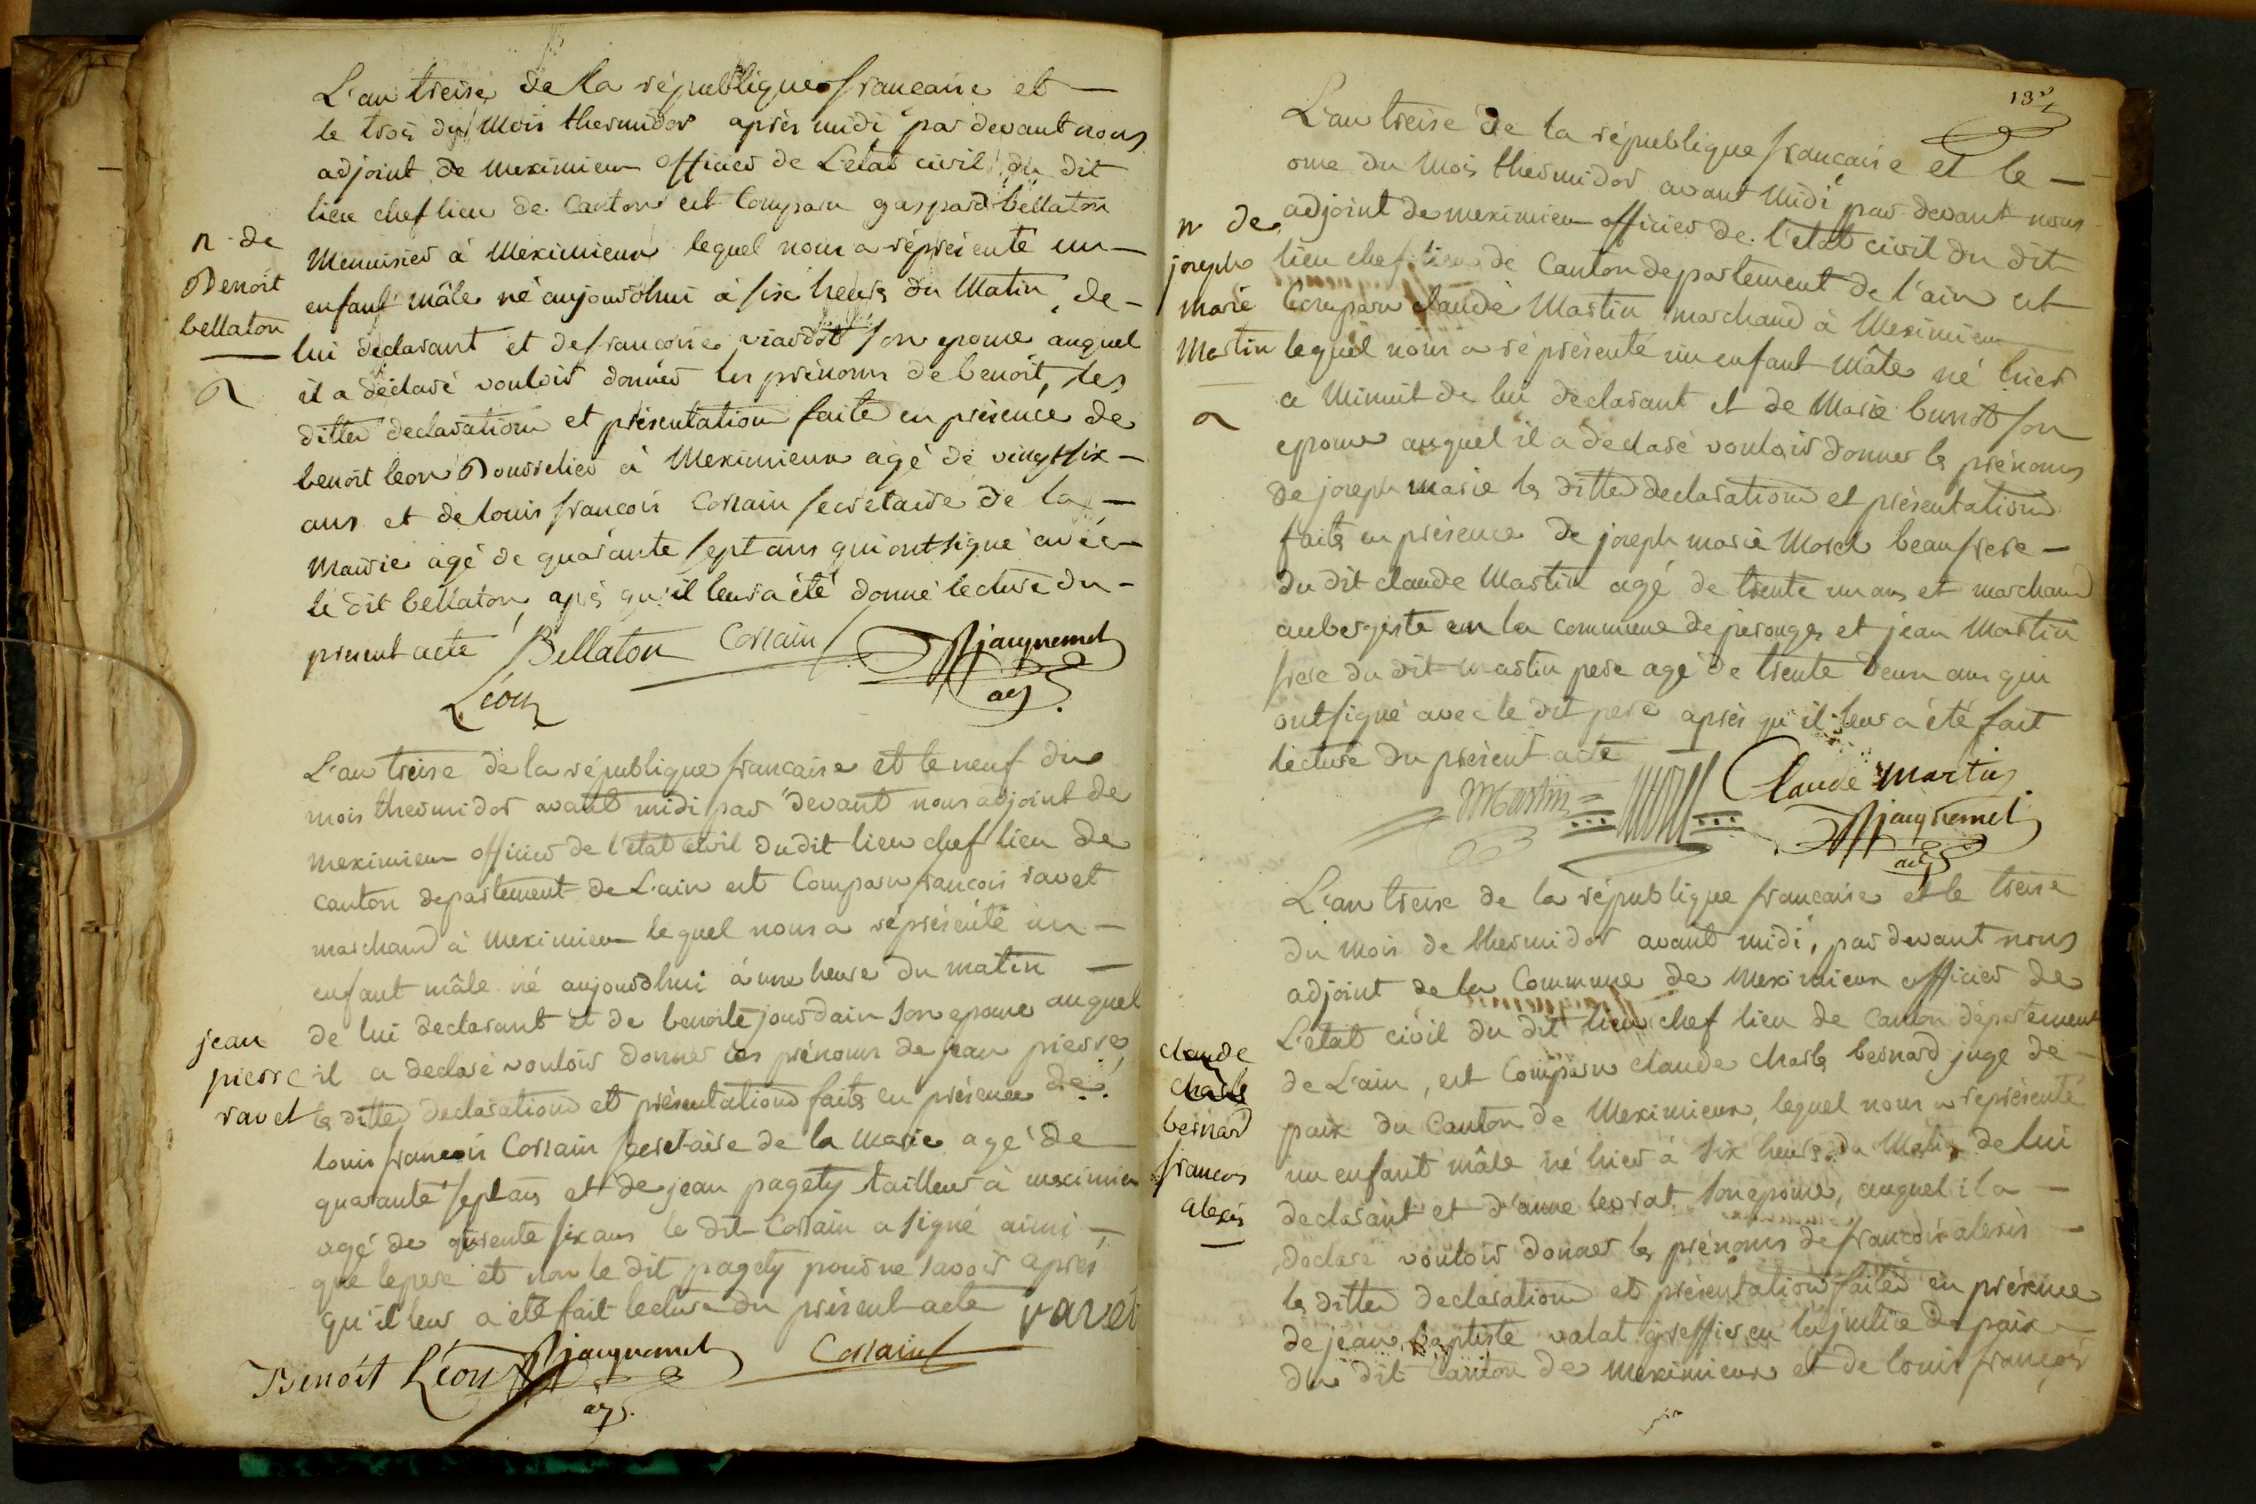 L'an treise de la république francaise et
le trois du mois thermidor après midi par devant nous
adjoint de meximieux officier de L'etat civil du dit
lieu chef lieu de Canton est Comparu gaspard bellaton
n. de
Benoit
bellaton
Menuisier à Meximieux lequel nous a réprésenté un
enfant mâle né aujourdhui à six heures du Matin, de
lui declarant et de francoise viardot son epouse auquel
il a déclaré vouloir donner les prénoms de benoit, les
dittes declaration et présentation faite en présence de
benoit leon Bourrelier à Meximieux agé de vingt six
ans et de louis francois Corrain secretaire de la
Mairie agé de quarante sept ans qui ont signé avec
le dit bellaton, après qu'il leur a été donné lecture du
present acte Bellaton Corrain jacquemet
adj.
Léon
L'an treise de la république francaise et le neuf du
mois thermidor avant midi par devant nous adjoint de
meximieux officier de l'état civil du dit lieu chef lieu de
canton departement de L'ain est Comparu francois ravet
marchand à meximieux lequel nous a réprésenté un
enfant mâle né aujourdhui à une heure du matin
de lui declarant et de benoite jourdain son epouse auquel
jean
pierre
ravet
il a declaré vouloir donner les prénoms de jean pierre
les dittes declaration et présentation faites en présence de
louis francois Corrain secretaire de la Marie agé de
quarante sept ans et de jean pagety tailleur à meximieux
agé de trente six ans le dit Corrain a signé ainsi
que le pere et non le dit pagety pour ne savoir après
qu'il leur a été fait lecture du présent acte ravet
Benoit Léon jacquemet Corrain
adj.
132
L'an treise de la république francaise et le
onse du Mois thermidor avant Midi par devant nous
n de
joseph
marie
Martin
adjoint de meximieux officier de l'etat civil du dit
lieu chef lieu de Canton departement de l'ain est
Comparu claude Martin marchand à Meximieux
lequel nous a réprésenté un enfant Mâle né hier
a Minuit de lui declarant et de Marie son
epouse auquel il a declaré vouloir donner les prénoms
de joseph marie les dittes declaration et présentation
faites en présence de joseph marie Morel beau frere
du dit claude Martin agé de trente un ans et marchand
aubergiste en la commune de perouges et jean Martin
frere du dit martin pere agé de trente deux ans qui
ont signé avec le dit pere après qu'il leur a été fait
lecture du présent acte
Martin Morel Claude Martin
jacquemet
adj
L'an treise de la république francaise et le treise
du mois de thermidor avant midi, par devant nous
adjoint de la Commune de Meximieux officier de
L'etat civil du dit lieu chef lieu de canton département
claude
charle
bernard
francois
alexis
de L'ain, est Comparu claude charle bernard juge de
paix du Canton de Meximieux, lequel nous a représenté
un enfant mâle né hier à six heures du Matin de lui
declarant et d'anne levrat son epouse, auquel il a
declaré vouloir donner les prénoms de francois alexis
les dittes declaration et présentation faites en présence
de jean baptiste valat greffier en la justice de paix
du dit Canton de meximieux et de louis françois